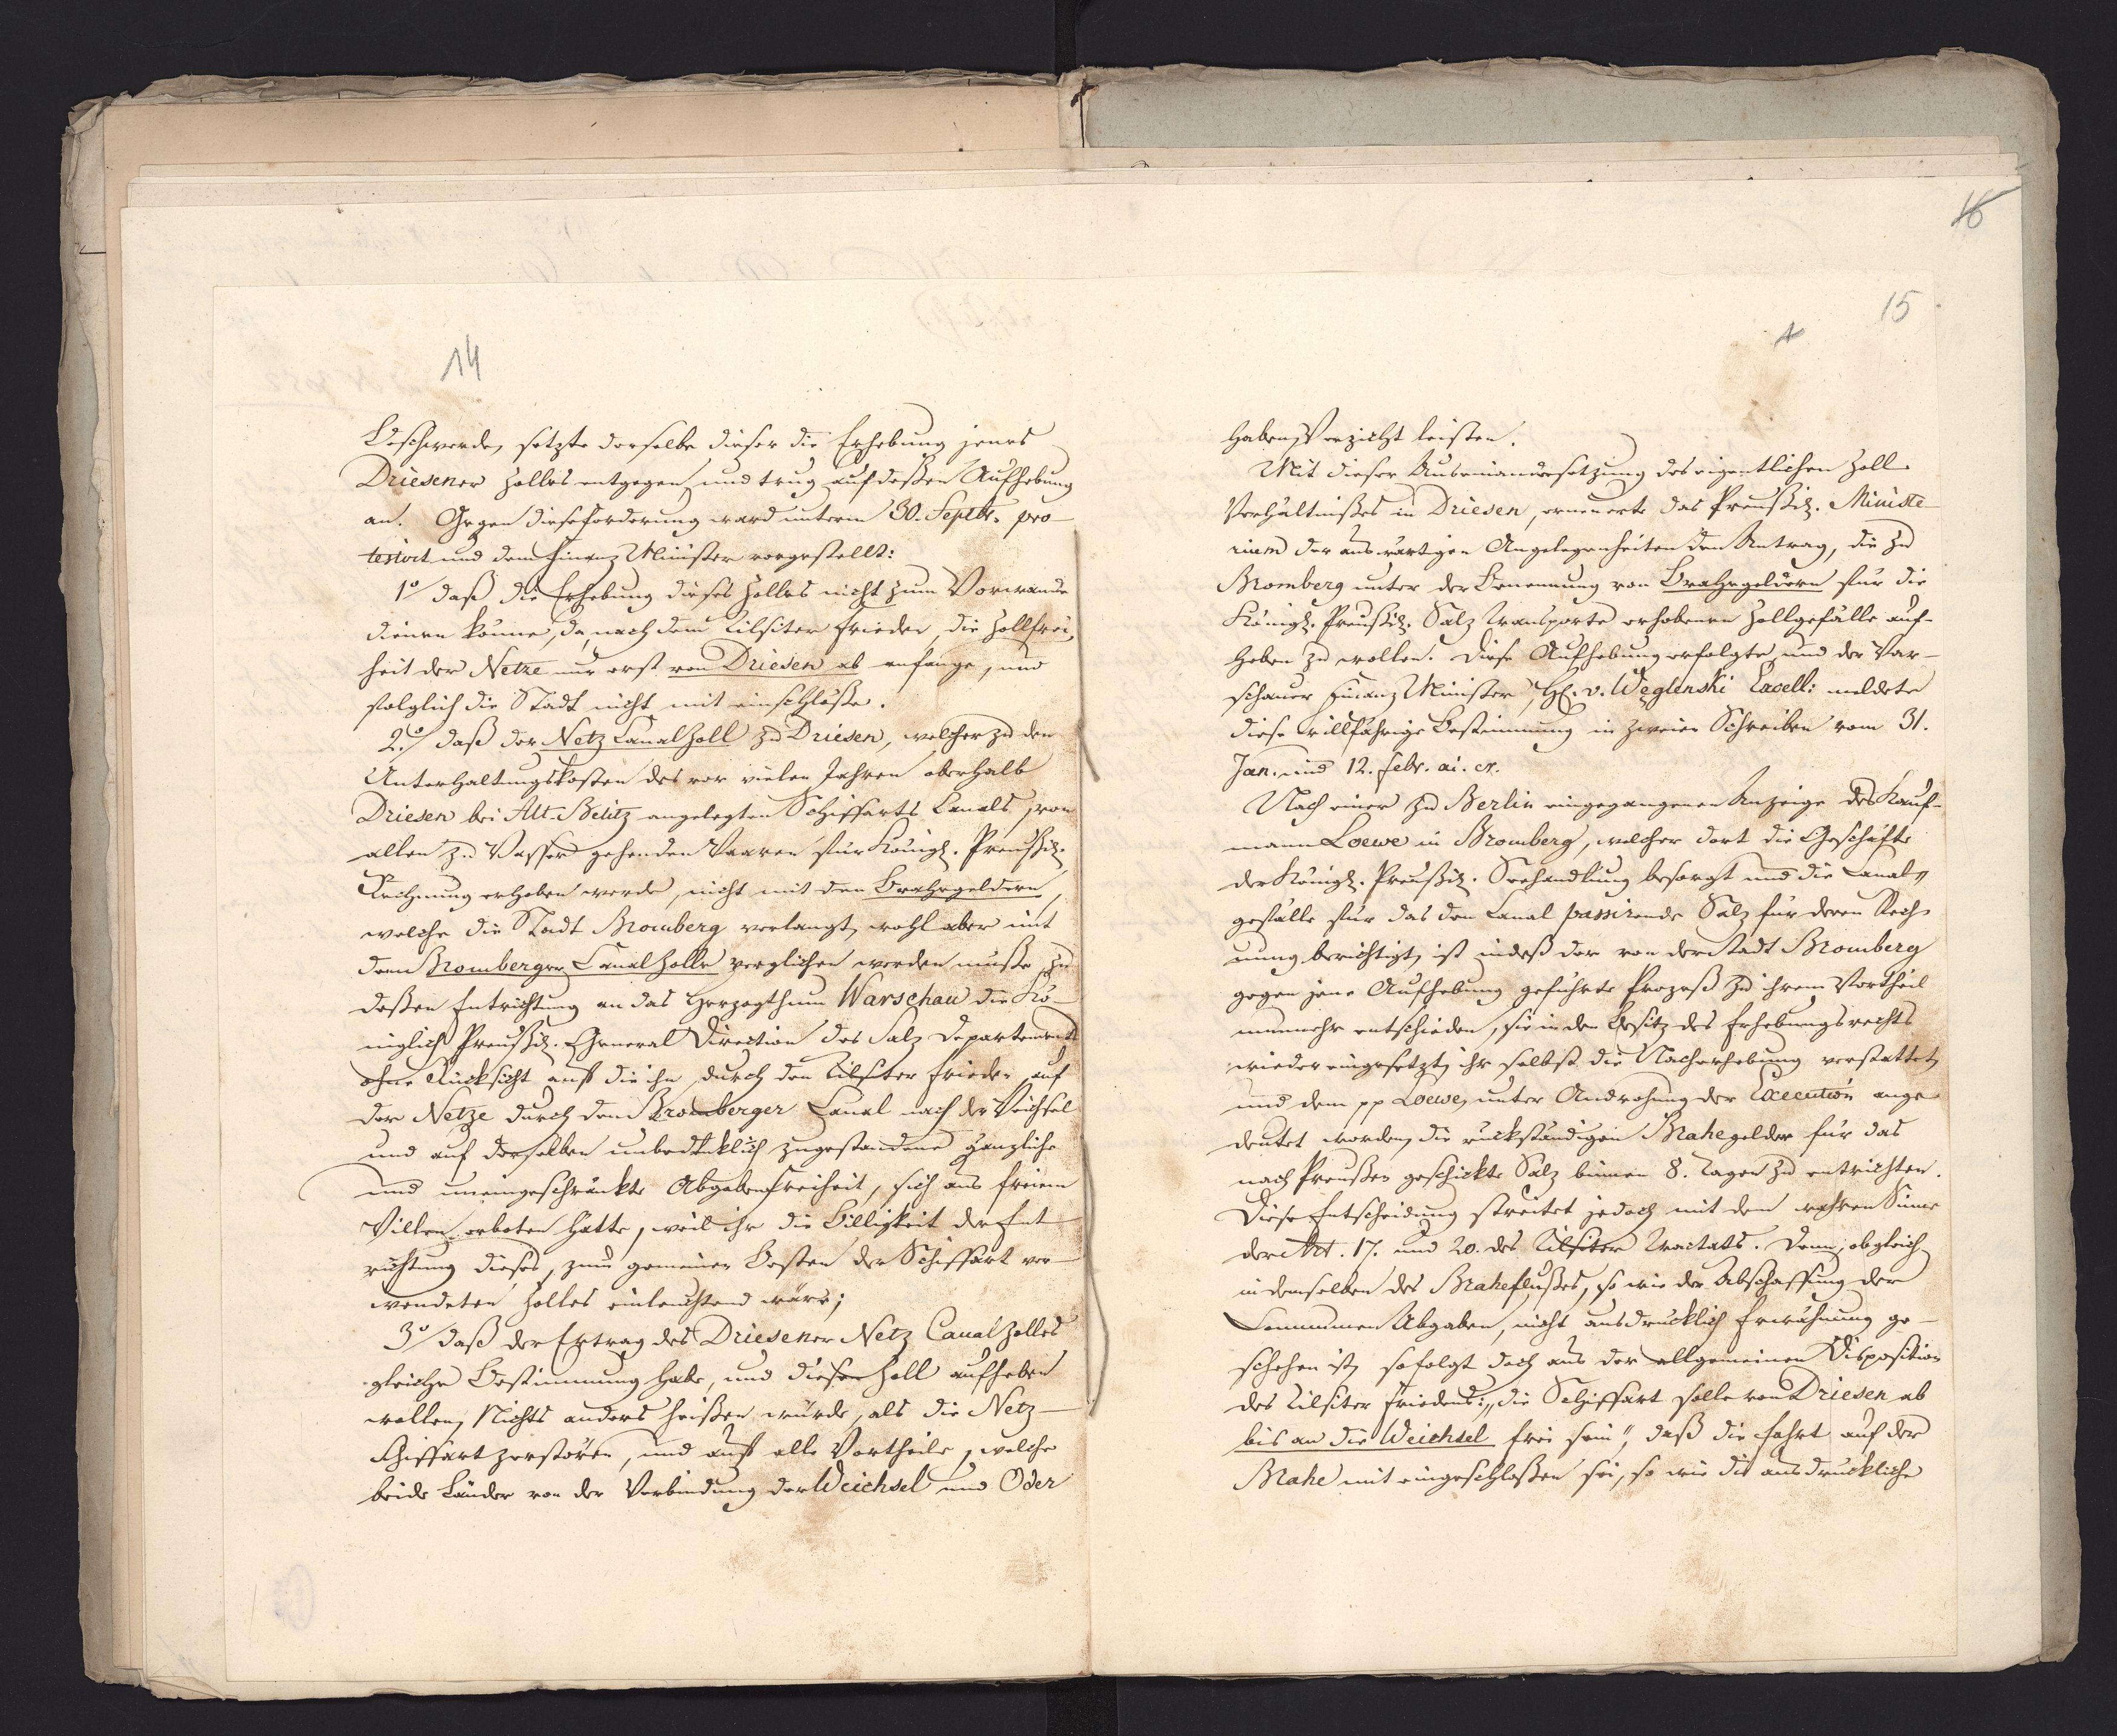 14
Beschwerde, setzte derselbe dieser die Erhebung jenes
Driesener Zolles entgegen, und trug auf deßen Aufhebung
an. Gegen diese Forderung ward unterm 30. Septbr. pro-
testirt und dem Finanz Minister vorgestellt:
1º daß die Erhebung dieses Zolles nicht zum Vorwande
dienen könne, da, nach dem Tilsiter Frieden, die Zollfrei-
heit der Netze nur erst von Driesen ab anfange, und
folglich die Stadt nicht mit einschließe.
2º daß der Netz Canal Zoll zu Driesen, welcher zu den
Unterhaltungskosten des vor vielen Jahren oberhalb
Driesen bei Alt-Belitz angelegten Schiffarts Canals, von
allen zu Waßer gehenden Waaren für Königl. Preußisch.
Rechnung erhoben werde, nicht mit den Brahegeldern,
welche die Stadt Bromberg verlangt, wohl aber mit
dem Bromberger Canal Zolle verglichen werden müße, zu
deßen Entrichtung an das Herzogthum Warschau die Kö-
niglich Preußisch. General Direction des Salz Departements
ohne Rücksicht auf die ihr durch den Tilsiter Frieden auf
der Netze durch den Bromberger Canal nach der Weichsel
und auf derselben unbedenklich zugestandene gänzliche
und uneingeschränkte Abgabenfreiheit, sich aus freiem
Willen erboten hätte, weil ihr die Billigkeit der Ent-
richtung dieses, zum gemeinen Besten der Schiffart ver-
wendeten Zolles einleuchtend wäre;
3º daß der Ertrag des Driesener Netz Canal Zolles
gleiche Bestimmung habe, und diesen Zoll aufheben
wollen, Nichts anders heißen würde, als die Netz-
schiffart zerstören, und auf alle Vortheile, welche
beide Länder von der Verbindung der Weichsel und Oder
16
15
haben, Verzicht leisten.
Mit dieser Auseinandersetzung des eigentlichen Zoll-
Verhältnißes in Driesen, erneuerte das Preußisch. Ministe-
rium der auswärtigen Angelegenheiten den Antrag, die zu
Bromberg unter der Benennung von Brahegeldern für die
Königl. Preußisch. Salz Transporte erhobenen Zollgefälle auf-
heben zu wollen. Diese Aufhebung erfolgte, und der War-
schauer Finanz Minister, H. v. Węglenski Excell: meldete
diese willfährige Bestimmung in zweien Schreiben vom 31.
Jan. und 12. Febr. ai. cr.
Nach einer zu Berlin eingegangenen Anzeige des Kauf-
mann Loewe in Bromberg, welcher dort die Geschäfte
der Königl. Preußisch. Seehandlung besorgt und die Canal-
gefälle für das den Canal passirende Salz für deren Rech-
nung berichtigt, ist indeß der von der Stadt Bromberg
gegen jene Aufhebung geführte Prozeß zu ihrem Vortheil
nunmehr entschieden, sie in den Besitz des Erhebungsrechts
wieder eingesetzt, ihr selbst die Nacherhebung verstattet,
und dem pp Loewe, unter Androhung der Execution ange-
deutet worden, die rückständigen Brahegelder für das
nach Preußen geschickte Salz binnen 8. Tagen zu entrichten.
Diese Entscheidung streitet jedoch mit dem wahren Sinne
der Art. 17. und 20. des Tilsiter Tractats. Denn, obgleich
in demselben des Braheflußes, so wie der Abschaffung der
Communen Abgaben, nicht ausdrücklich Erwähnung ge-
schehen ist, so folgt doch aus der allgemeinen Disposition
des Tilsiter Friedens: „die Schiffart solle von Driesen ab
bis an die Weichsel frei sein", daß die Fahrt auf der
Brahe mit eingeschloßen sei, so wie die ausdrückliche